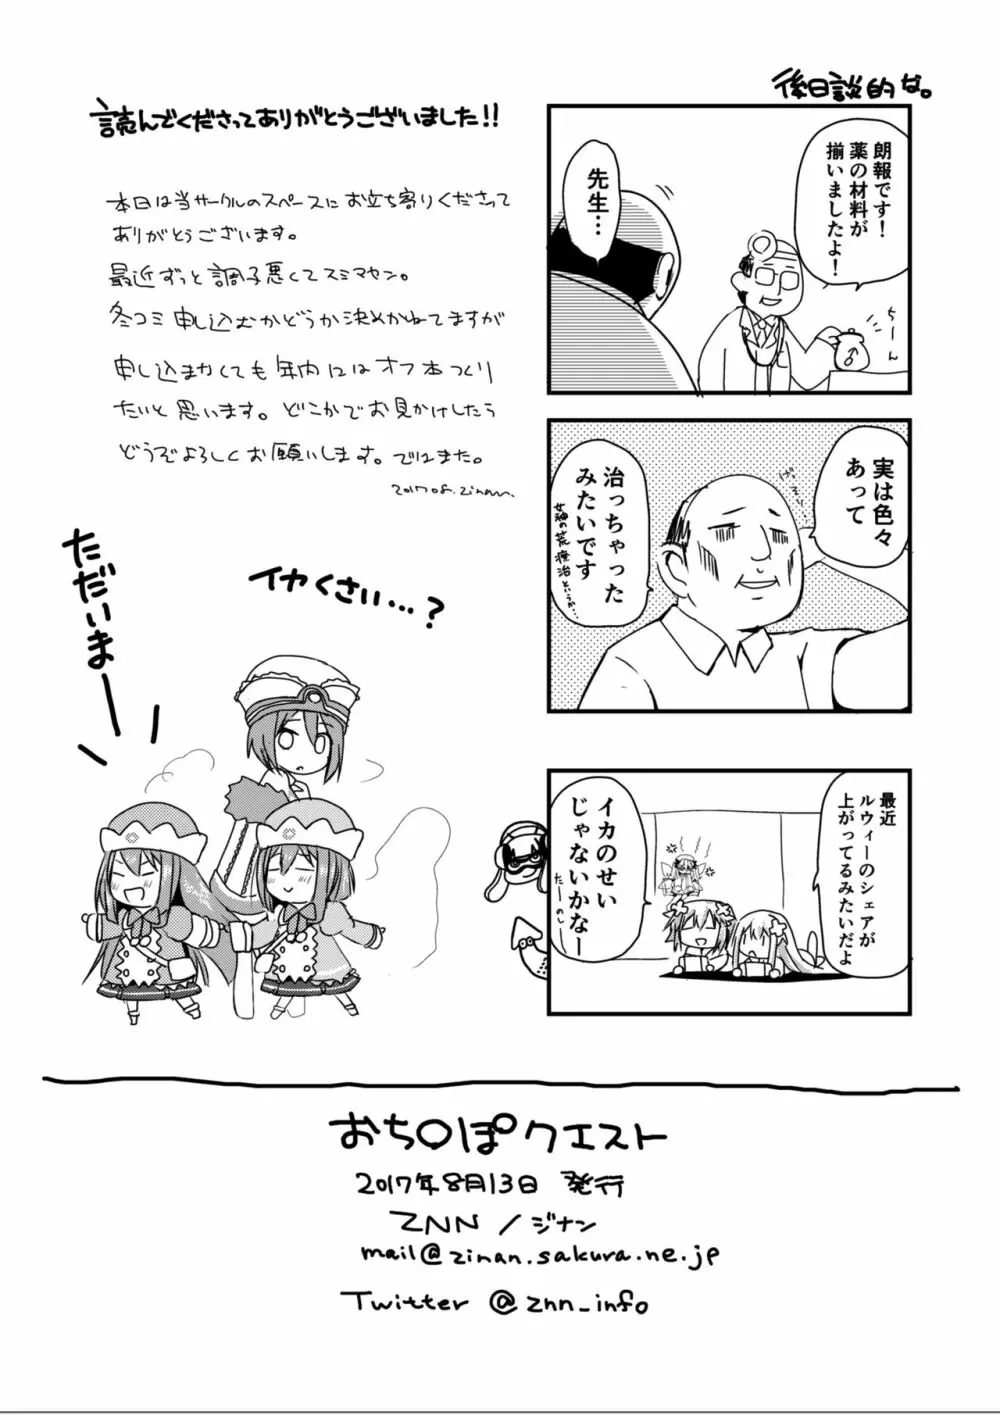 後日談的な。
朗報です!
薬の材料が
揃いましたよ!
先生…
ちーん
実は色々
あって
げっそり
治っちゃった
みたいです
女神の荒療治というか…
最近
ルウィーのシェアが
上がってるみたいだよ
イカのせい
じゃないかなー
たーのし
読んでくださってありがとうございました!!
本日は当サークルのスペースにお立ち寄りくださって
ありがとうございます。
最近ずっと調子悪くてスミマセン。
冬コミ申し込むかどうか決めかねてますが
申し込まなくても年内にはオフ本つくり
たいと思います。どこかでお見かけしたら
どうぞよろしくお願いします。ではまた。
2017 08. Zinan.
ただいまー
イカくさい…?
おち〇ぽクエスト
2017年8月13日 発行
ZNN / ジナン
mail@zinan.sakura.ne.jp
Twitter @znn_info